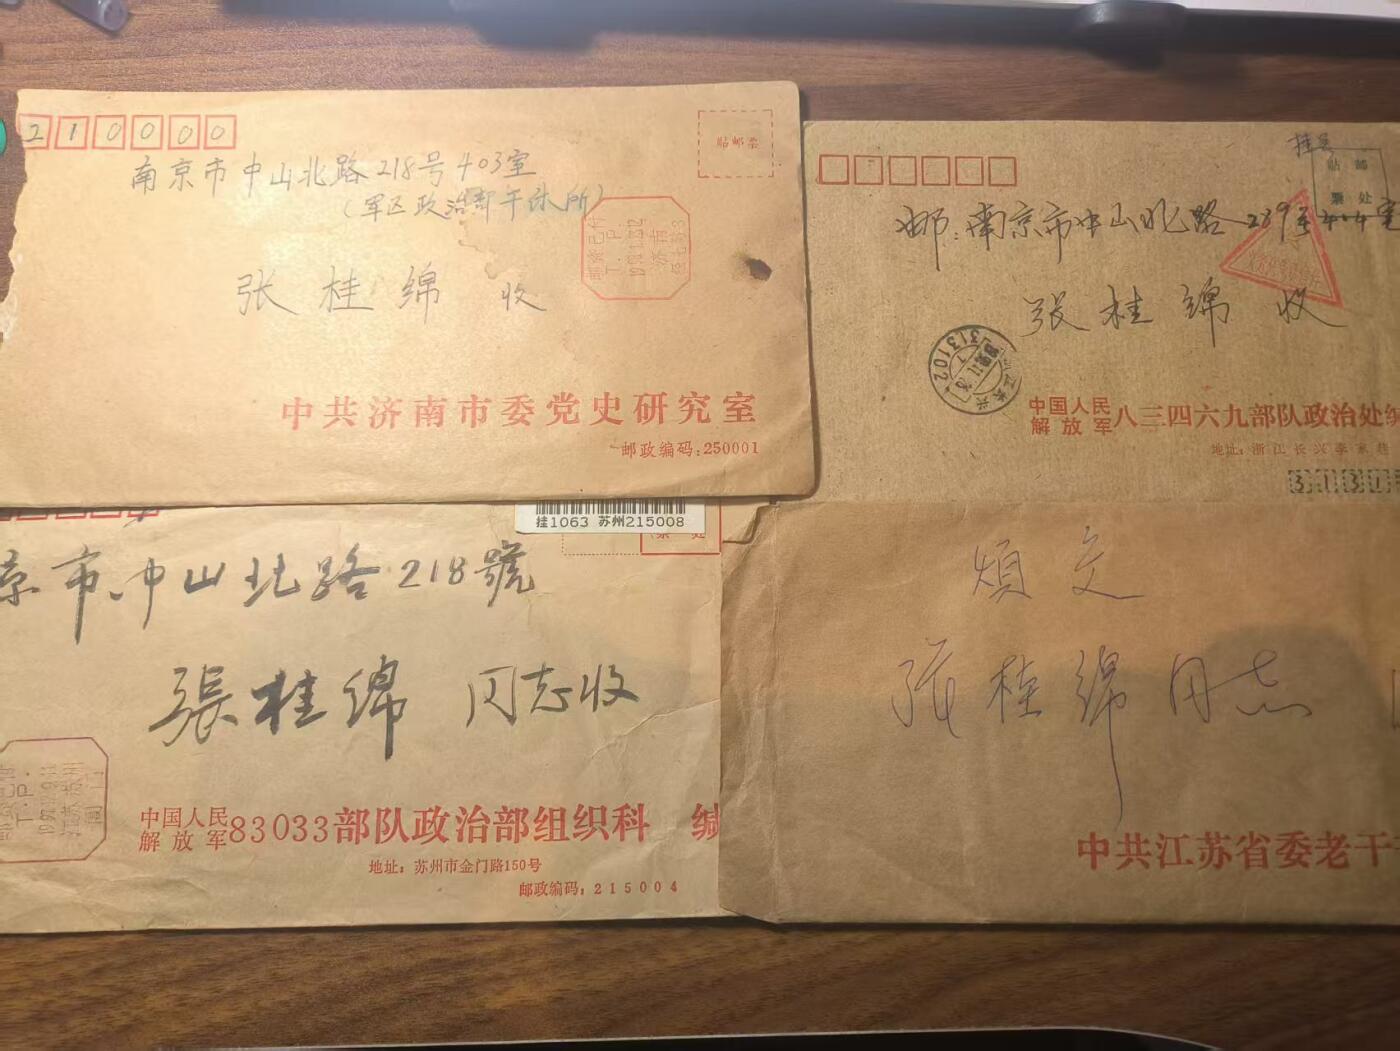 210000
贴邮票
南京市中山北路218号403室
(军区政治部干休所)
张桂绵 收
邮资已付
T.P.
济南
中共济南市委党史研究室
邮政编码:250001
挂号
贴 邮
票 处
邮:南京市中山北路
张桂绵 收
313102
中国人民
解放军
八三四六九部队政治处
地址:浙江长兴李家巷
挂1063 苏州215008
京市中山北路218號
張桂绵 同志收
T.P.
中国人民
解放军
83033部队政治部组织科 缄
地址:苏州市金门路150号
邮政编码:215004
烦交
张桂绵同志
中共江苏省委老干